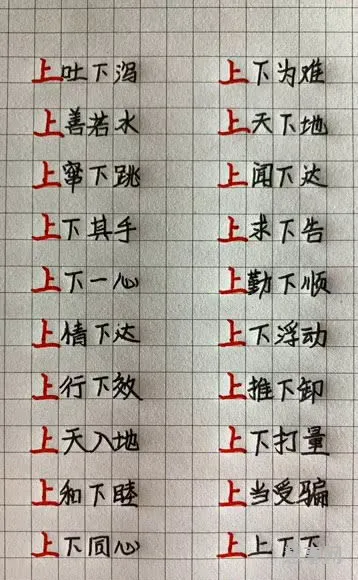 上吐下泻 上下为难
上善若水 上天下地
上窜下跳 上闻下达
上下其手 上求下告
上下一心 上勤下顺
上情下达 上下浮动
上行下效 上推下卸
上天入地 上下打量
上和下睦 上当受骗
上下同心 上上下下